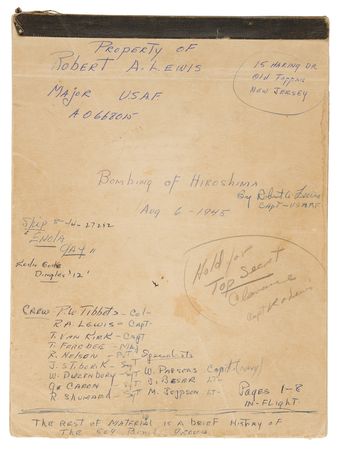 PROPERTY OF
ROBERT A. LEWIS
MAJOR USAF
15 HARING DR
OLD TAPPAN
NEW JERSEY
BOMBING OF HIROSHIMA
By Robert A. Lewis
CAPT-USAAF
Aug 6-1945
Ship
"ENOLA
GAY"
Radio Code
Dimples '12'
Hold for
TOP Secret
Clearance
Capt R A Lewis
CREW P.W. TIBBETS - Col-
R.A. LEWIS - CAPT
T. VAN KIRK - CAPT
T. FEREBEE - MAJ
R. NELSON - PVT Specialists
J. STIBORIK - SGT W. PARSONS Capt (Navy)
W. DUZENBURY - SGT J. BESER LT-
G. CARON - SGT M. JEPPSON LT-
R. SHUMARD - SGT
PAGES 1-8
IN-FLIGHT
THE REST OF MATERIAL IS A BRIEF HISTORY OF
THE 509 Bomb Group